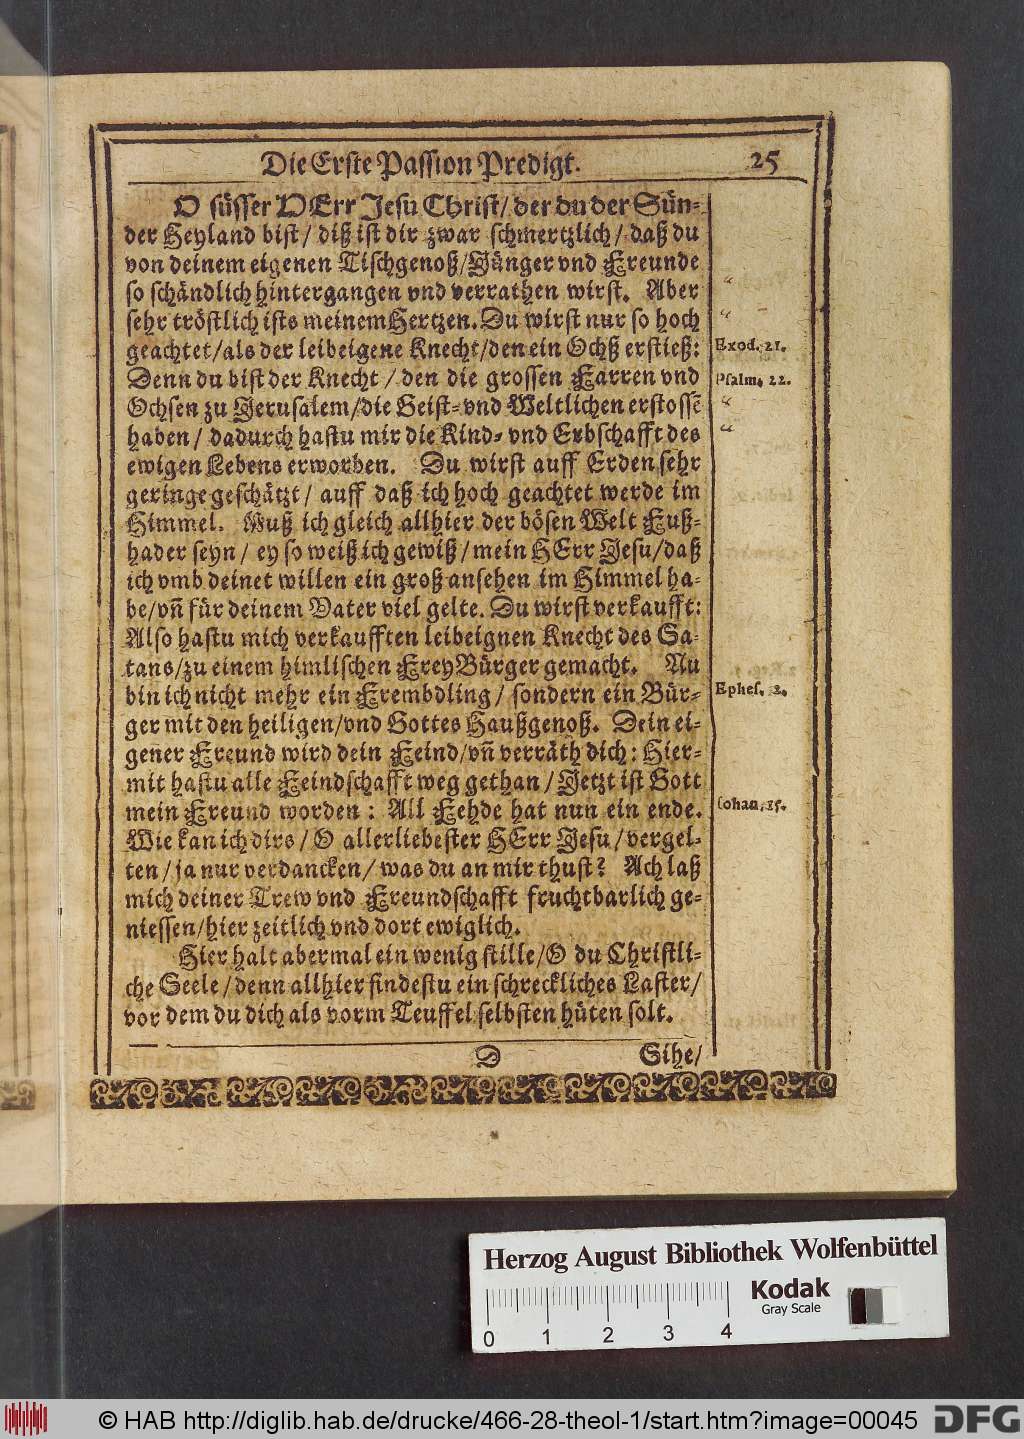 Die Erste Passion Predigt. 25
O süsser HErr Jesu Christ/ der du der Sün-
der Heyland bist/ diß ist dir zwar schmertzlich/ daß du
von deinem eigenen Tischgenoß/Jünger vnd Freunde
so schändlich hintergangen vnd verrathen wirst. Aber
sehr tröstlich ists meinem Hertzen. Du wirst nur so hoch
geachtet/als der leibeigene Knecht/den ein Ochß erstieß: Exod. 21.
Denn du bist der Knecht/den die grossen Farren vnd Psalm. 22.
Ochsen zu Jerusalem/die Geist- vnd Weltlichen erstossē
haben/ dadurch hastu mir die Kind- vnd Erbschafft des
ewigen Lebens erworben. Du wirst auff Erden sehr
geringe geschätzt/ auff daß ich hoch geachtet werde im
Himmel. Muß ich gleich allhier der bösen Welt Fuß-
hader seyn/ ey so weiß ich gewiß/mein HErr Jesu/daß
ich vmb deinet willen ein groß ansehen im Himmel ha-
be/vn̄ für deinem Vater viel gelte. Du wirst verkaufft:
Also hastu mich verkaufften leibeignen Knecht des Sa-
tans/zu einem himlischen FreyBürger gemacht. Nu
bin ich nicht mehr ein Frembdling/ sondern ein Bür- Ephes. 2.
ger mit den heiligen/vnd Gottes Haußgenoß. Dein ei-
gener Freund wird dein Feind/vn̄ verräth dich: Hier-
mit hastu alle Feindschafft weg gethan/Jetzt ist Gott
mein Freund worden: All Fehde hat nun ein ende. Iohan. 15.
Wie kan ich dirs/ O allerliebester HErr Jesu/vergel-
ten/ja nur verdancken/was du an mir thust? Ach laß
mich deiner Trew vnd Freundschafft fruchtbarlich ge-
niessen/hier zeitlich vnd dort ewiglich.
Hier halt abermal ein wenig stille/O du Christli-
che Seele/denn allhier findestu ein schreckliches Laster/
vor dem du dich als vorm Teuffel selbsten hüten solt.
D Sihe/
Herzog August Bibliothek Wolfenbüttel
Kodak
Gray Scale
0 1 2 3 4
© HAB http://diglib.hab.de/drucke/466-28-theol-1/start.htm?image=00045 DFG